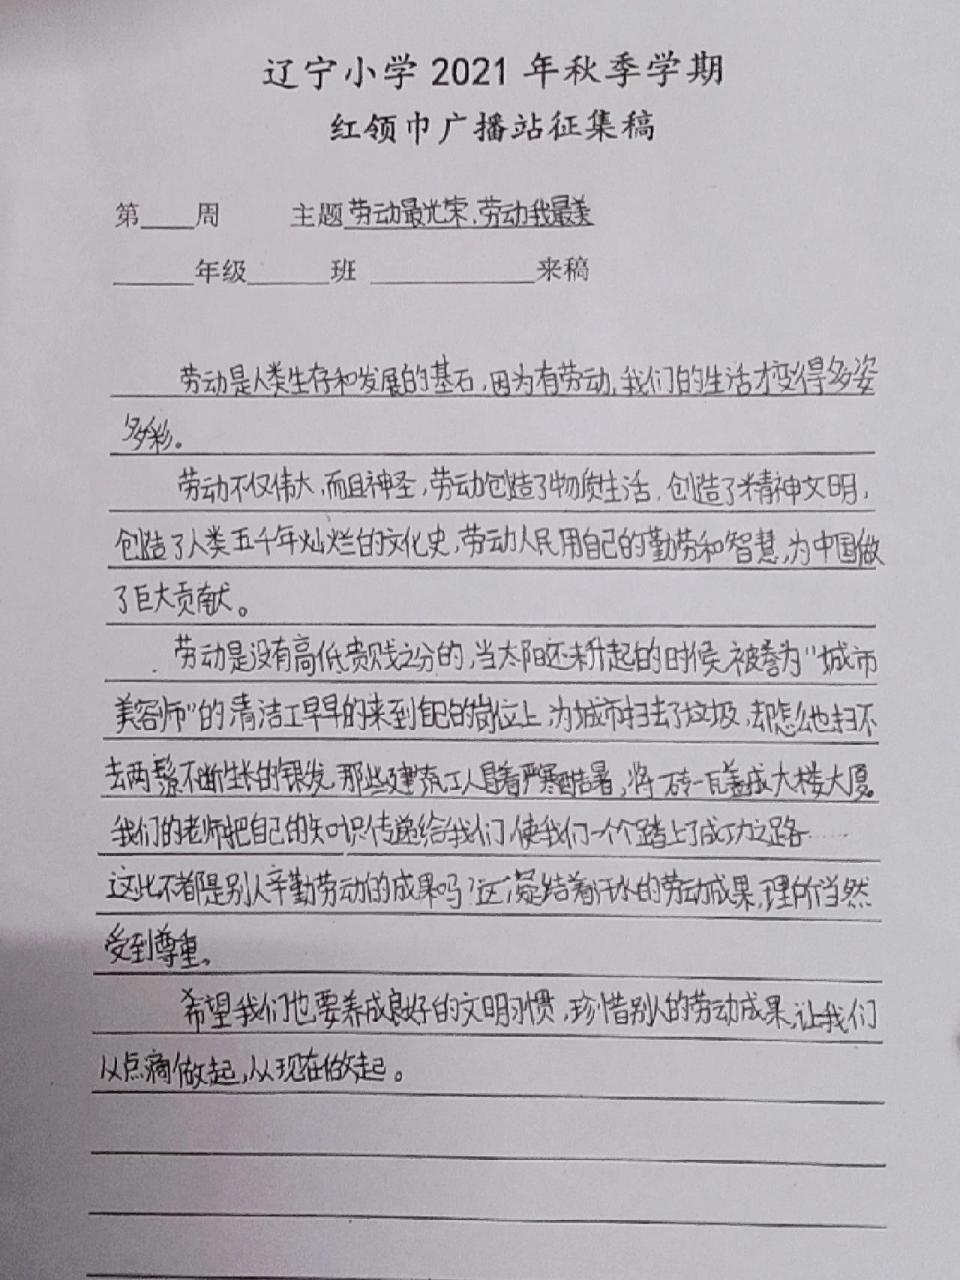 辽宁小学 2021 年秋季学期
红领巾广播站征集稿
第____周 主题劳动最光荣,劳动我最美
______年级______班 ____________来稿
劳动是人类生存和发展的基石,因为有劳动,我们的生活才变得多姿
多彩。
劳动不仅伟大,而且神圣,劳动创造了物质生活,创造了精神文明,
创造了人类五千年灿烂的文化史,劳动人民用自己的勤劳和智慧,为中国做
了巨大贡献。
劳动是没有高低贵贱之分的,当太阳还未升起的时候,被誉为“城市
美容师”的清洁工早早的来到自己的岗位上,为城市扫去了垃圾,却怎么也扫不
去两鬓不断生长的银发,那些建筑工人冒着严寒酷暑,将一砖一瓦盖成大楼大厦。
我们的老师把自己的知识传递给我们,使我们一个个踏上了成功之路……
这些不都是别人辛勤劳动的成果吗?这凝结着汗水的劳动成果,理所当然
受到尊重。
希望我们也要养成良好的文明习惯,珍惜别人的劳动成果,让我们
从点滴做起,从现在做起。